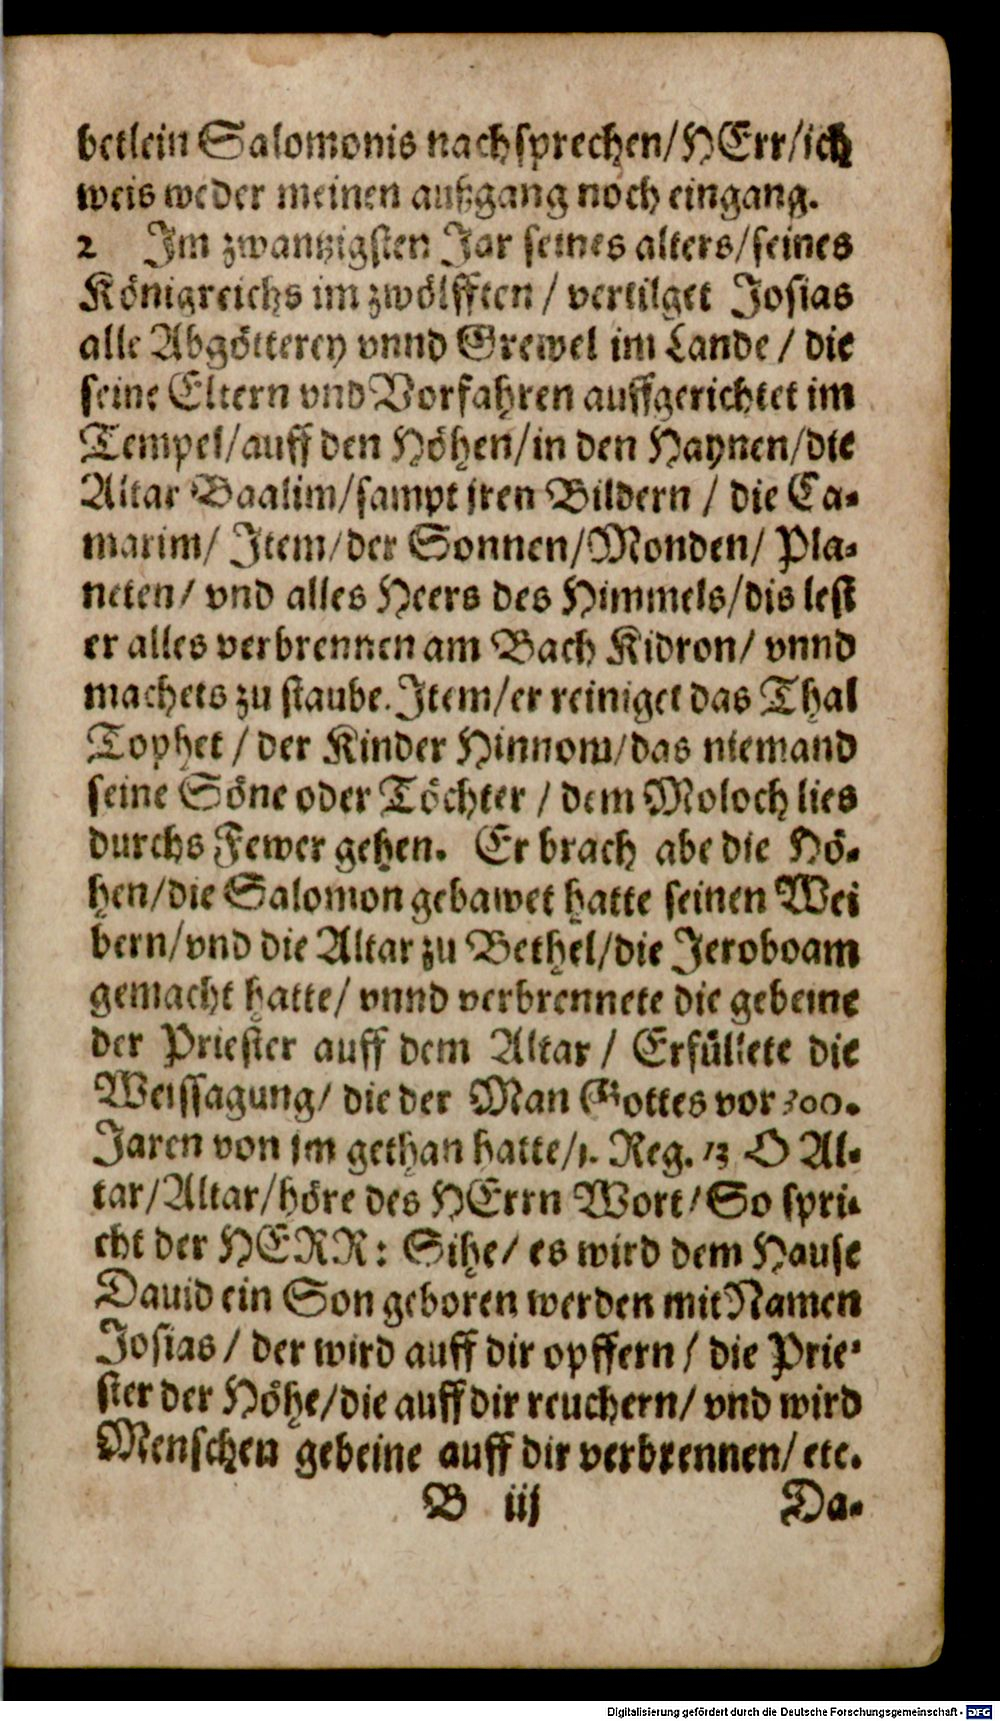 betlein Salomonis nachsprechen/HErr/ich
weis weder meinen außgang noch eingang.
2 Im zwantzigsten Jar seines alters/seines
Königreichs im zwölfften / vertilget Josias
alle Abgötterey vnnd Grewel im Lande / die
seine Eltern vnd Vorfahren auffgerichtet im
Tempel/auff den Höhen/in den Haynen/die
Altar Baalim/sampt jren Bildern / die Ca-
marim/ Item/der Sonnen/Monden/ Pla-
neten/ vnd alles Heers des Himmels/dis lest
er alles verbrennen am Bach Kidron/ vnnd
machets zu staube. Item/er reiniget das Thal
Tophet / der Kinder Hinnom/das niemand
seine Söne oder Töchter / dem Moloch lies
durchs Fewer gehen. Er brach abe die Hö-
hen/die Salomon gebawet hatte seinen Wei
bern/vnd die Altar zu Bethel/die Jeroboam
gemacht hatte/ vnnd verbrennete die gebeine
der Priester auff dem Altar / Erfüllete die
Weissagung/ die der Man Gottes vor 300.
Jaren von jm gethan hatte/1. Reg. 13 O Al-
tar/Altar/höre des HErrn Wort/So spri-
cht der HERR: Sihe/ es wird dem Hause
Dauid ein Son geboren werden mit Namen
Josias / der wird auff dir opffern / die Prie-
ster der Höhe/die auff dir reuchern/ vnd wird
Menschen gebeine auff dir verbrennen/ etc.
B iij Da-
Digitalisierung gefördert durch die Deutsche Forschungsgemeinschaft - DFG